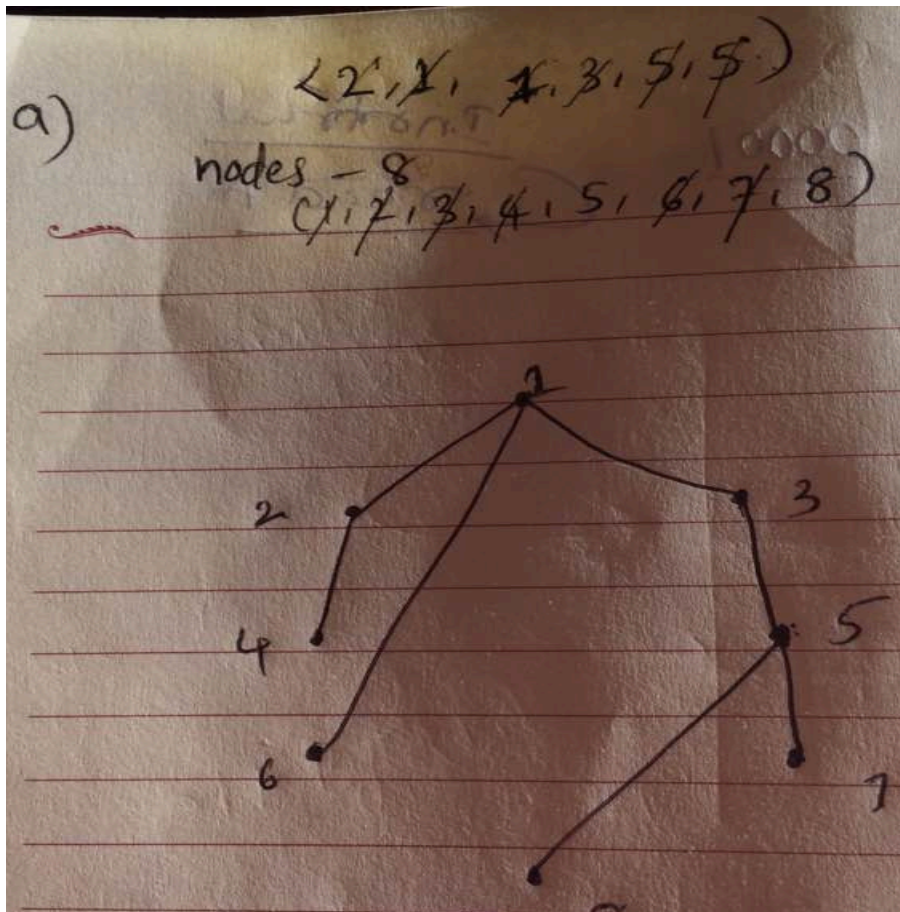 a)
<2, 1, 1, 3, 5, 5)
nodes - 8
(1, 2, 3, 4, 5, 6, 7, 8)
1
2
3
4
5
6
7